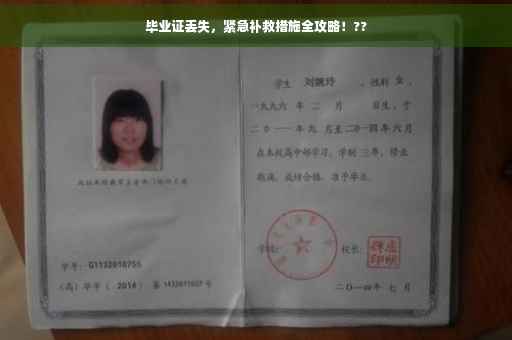 毕业证丢失，紧急补救措施全攻略！??
学生 刘婉玲 ，性别 女 ，
一九九六 年 二 月 日生，于
二〇一一年九 月至二〇一四年六月
在本校高中部学习，学制 三年，修业
期满，成绩合格，准予毕业。
学号：G1132010755
（高）毕字（ 2014 ）第 1432011027 号
学校：
校长：
二〇一四年 七 月